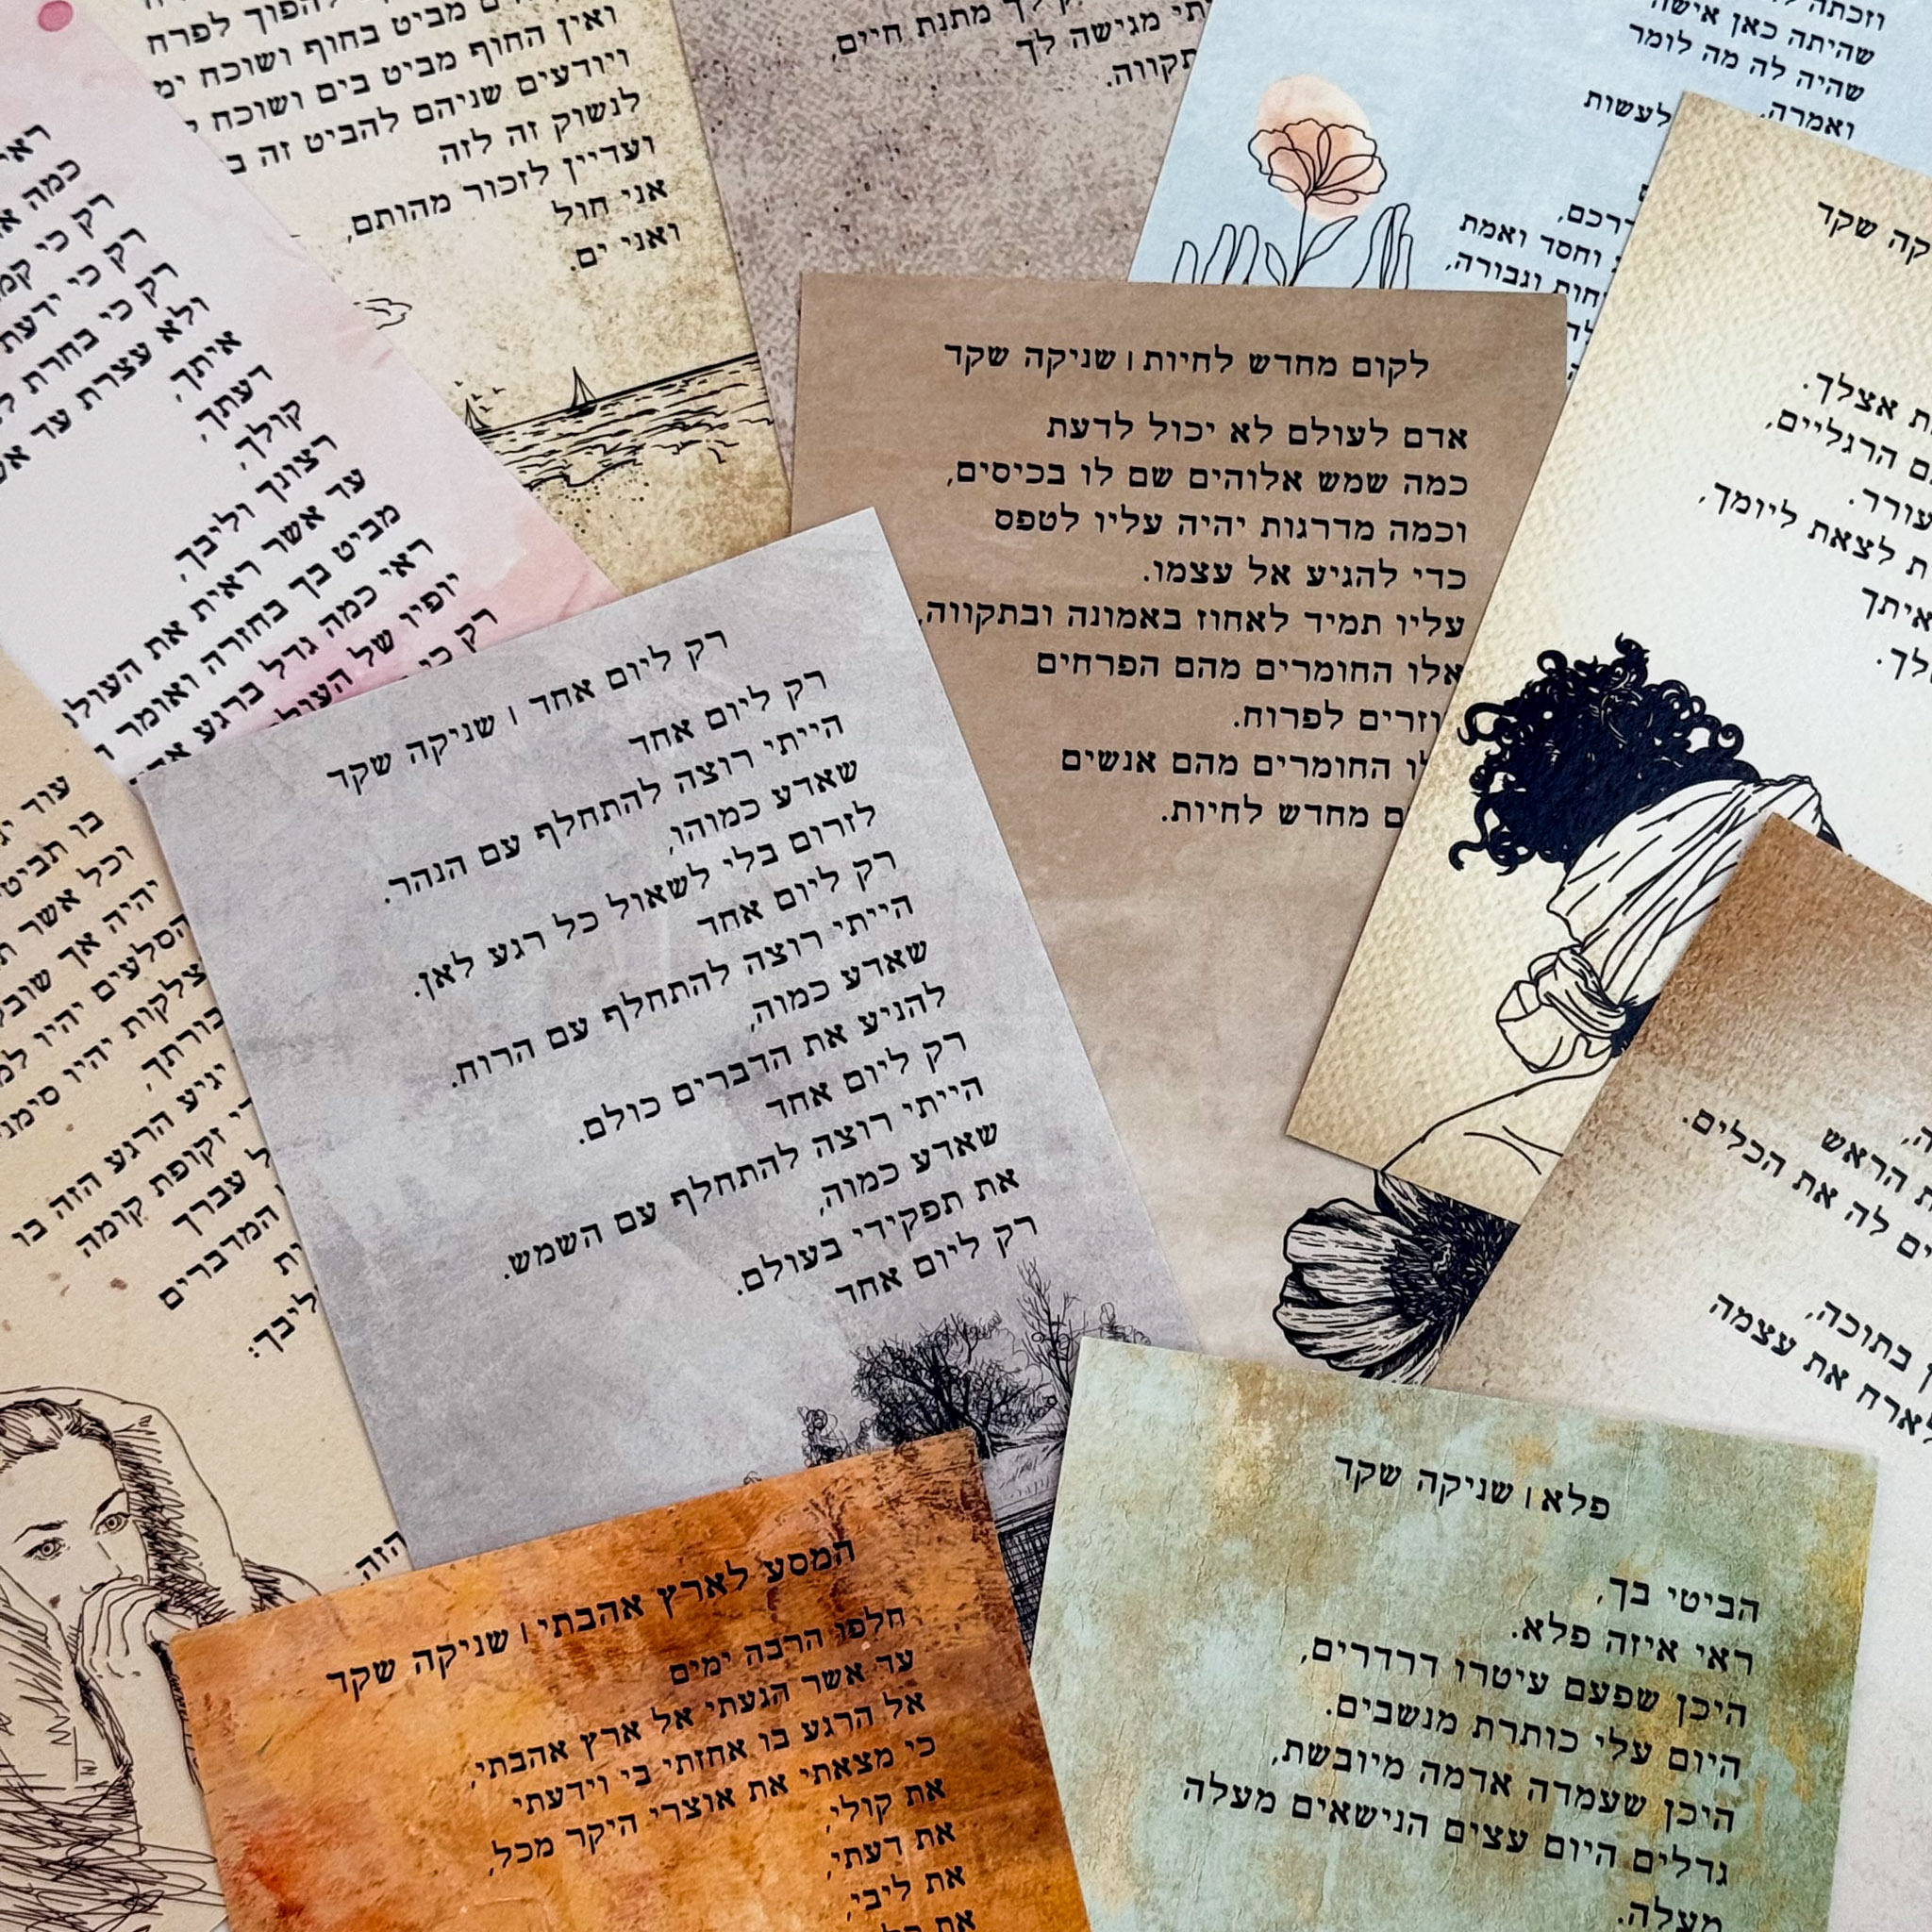 להפוך לפרח
מביט בחוף ושוכח
ואין החוף מביט בים ושוכח
ויודעים שניהם להביט זה
לנשוק זה לזה
ועדיין לזכור מהותם,
אני חול
ואני ים.
לך מתנת חיים,
מגישה לך
תקווה.
וזכתה
שהיתה כאן אישה
שהיה לה מה לומר
ואמרה.
לעשות
וחסד ואמת
וגבורה,
כמה
רק כי
רק כי ידעת
רק כי בחרת
ולא עצרת עד
איתך,
דעתך,
קולך,
רצונך וליבך,
עד אשר ראית את העולם
מביט בך בחזרה ואומר
ראי כמה גדל ברגע
יופיו של העולם
רק כי
שקד
אצלך.
הרגליים,
לצאת ליומך,
איתך
לקום מחדש לחיות | שניקה שקד
אדם לעולם לא יכול לדעת
כמה שמש אלוהים שם לו בכיסים,
וכמה מדרגות יהיה עליו לטפס
כדי להגיע אל עצמו.
עליו תמיד לאחוז באמונה ובתקווה,
אלו החומרים מהם הפרחים
לפרוח.
החומרים מהם אנשים
מחדש לחיות.
רק ליום אחד | שניקה שקד
רק ליום אחד
הייתי רוצה להתחלף עם הנהר.
שאדע כמוהו,
לזרום בלי לשאול כל רגע לאן.
רק ליום אחד
הייתי רוצה להתחלף עם הרוח.
שאדע כמוה,
להניע את הדברים כולם.
רק ליום אחד
הייתי רוצה להתחלף עם השמש.
שאדע כמוה,
את תפקידי בעולם.
רק ליום אחד
עוד
בו תביט
וכל אשר
יהיה אך
הסלעים יהיו
צלקות יהיו
יגיע הרגע הזה בו
זקופת קומה
עברך
המדברים
ליבך:
הזה.
הראש
לה את הכלים.
בתוכה,
לארח את עצמה
המסע לארץ אהבתי | שניקה שקד
חלפו הרבה ימים
עד אשר הגעתי אל ארץ אהבתי,
אל הרגע בו אחזתי בי וידעתי
כי מצאתי את אוצרי היקר מכל,
את קולי,
את דעתי,
את ליבי,
את
פלא | שניקה שקד
הביטי בך,
ראי איזה פלא.
היכן שפעם עיטרו דרדרים,
היום עלי כותרת מנשבים.
היכן שעמדה אדמה מיובשת,
גדלים היום עצים הנישאים מעלה
מעלה.